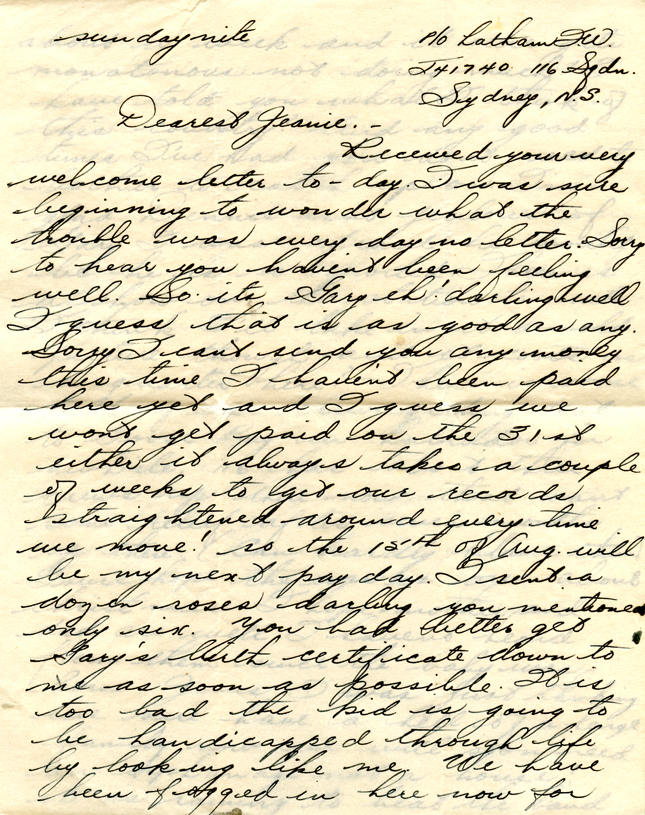 sunday nite
P/O Latham F.W.
J41740 116 Sqdn.
Sydney, N.S.
Dearest Jeanie. -
Received your very
welcome letter to-day. I was sure
beginning to wonder what the
trouble was every day no letter. Sorry
to hear you havent been feeling
well. So its Gary eh! darling well
I guess that is as good as any.
Sorry I cant send you any money
this time I havent been paid
here yet and I guess we
wont get paid on the 31st
either it always takes a couple
of weeks to get our records
straightened around every time
we move! so the 15th of Aug. will
be my next pay day. I sent a
dozen roses darling you mentioned
only six. You had better get
Gary's birth certificate down to
me as soon as possible. It is
too bad the kid is going to
be handicapped through life
by looking like me. We have
been fogged in here now for